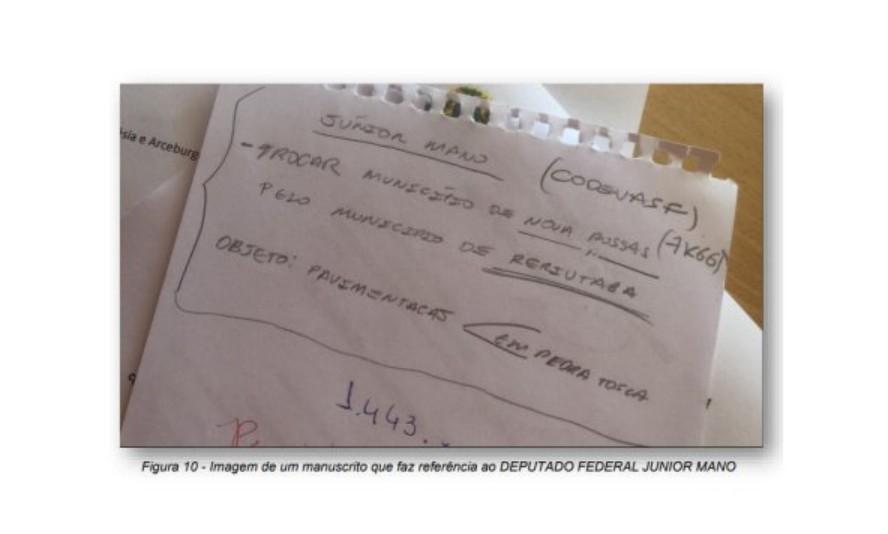 sia e Arceburg
JÚNIOR MANO
(CODEVASF)
- TROCAR MUNICÍPIO DE NOVA RUSSAS (7K66)
PELO MUNICIPIO DE RERIUTABA
OBJETO: PAVIMENTACAO EM PEDRA TOSCA
1.443.
Figura 10 - Imagem de um manuscrito que faz referência ao DEPUTADO FEDERAL JUNIOR MANO